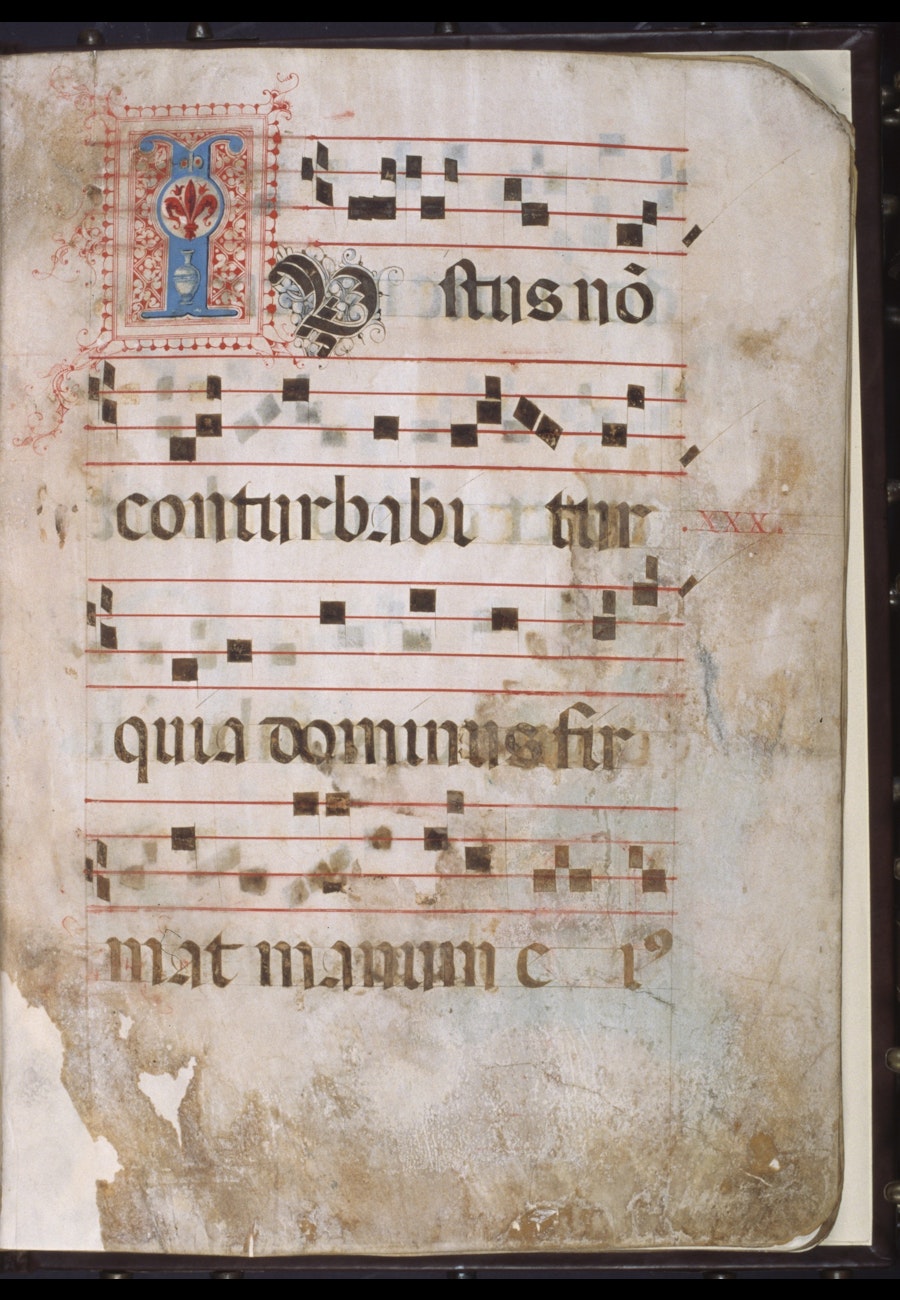 IVstus nō
conturbabi tur
.XXX.
quia dominus fir
mat manum e iꝰ